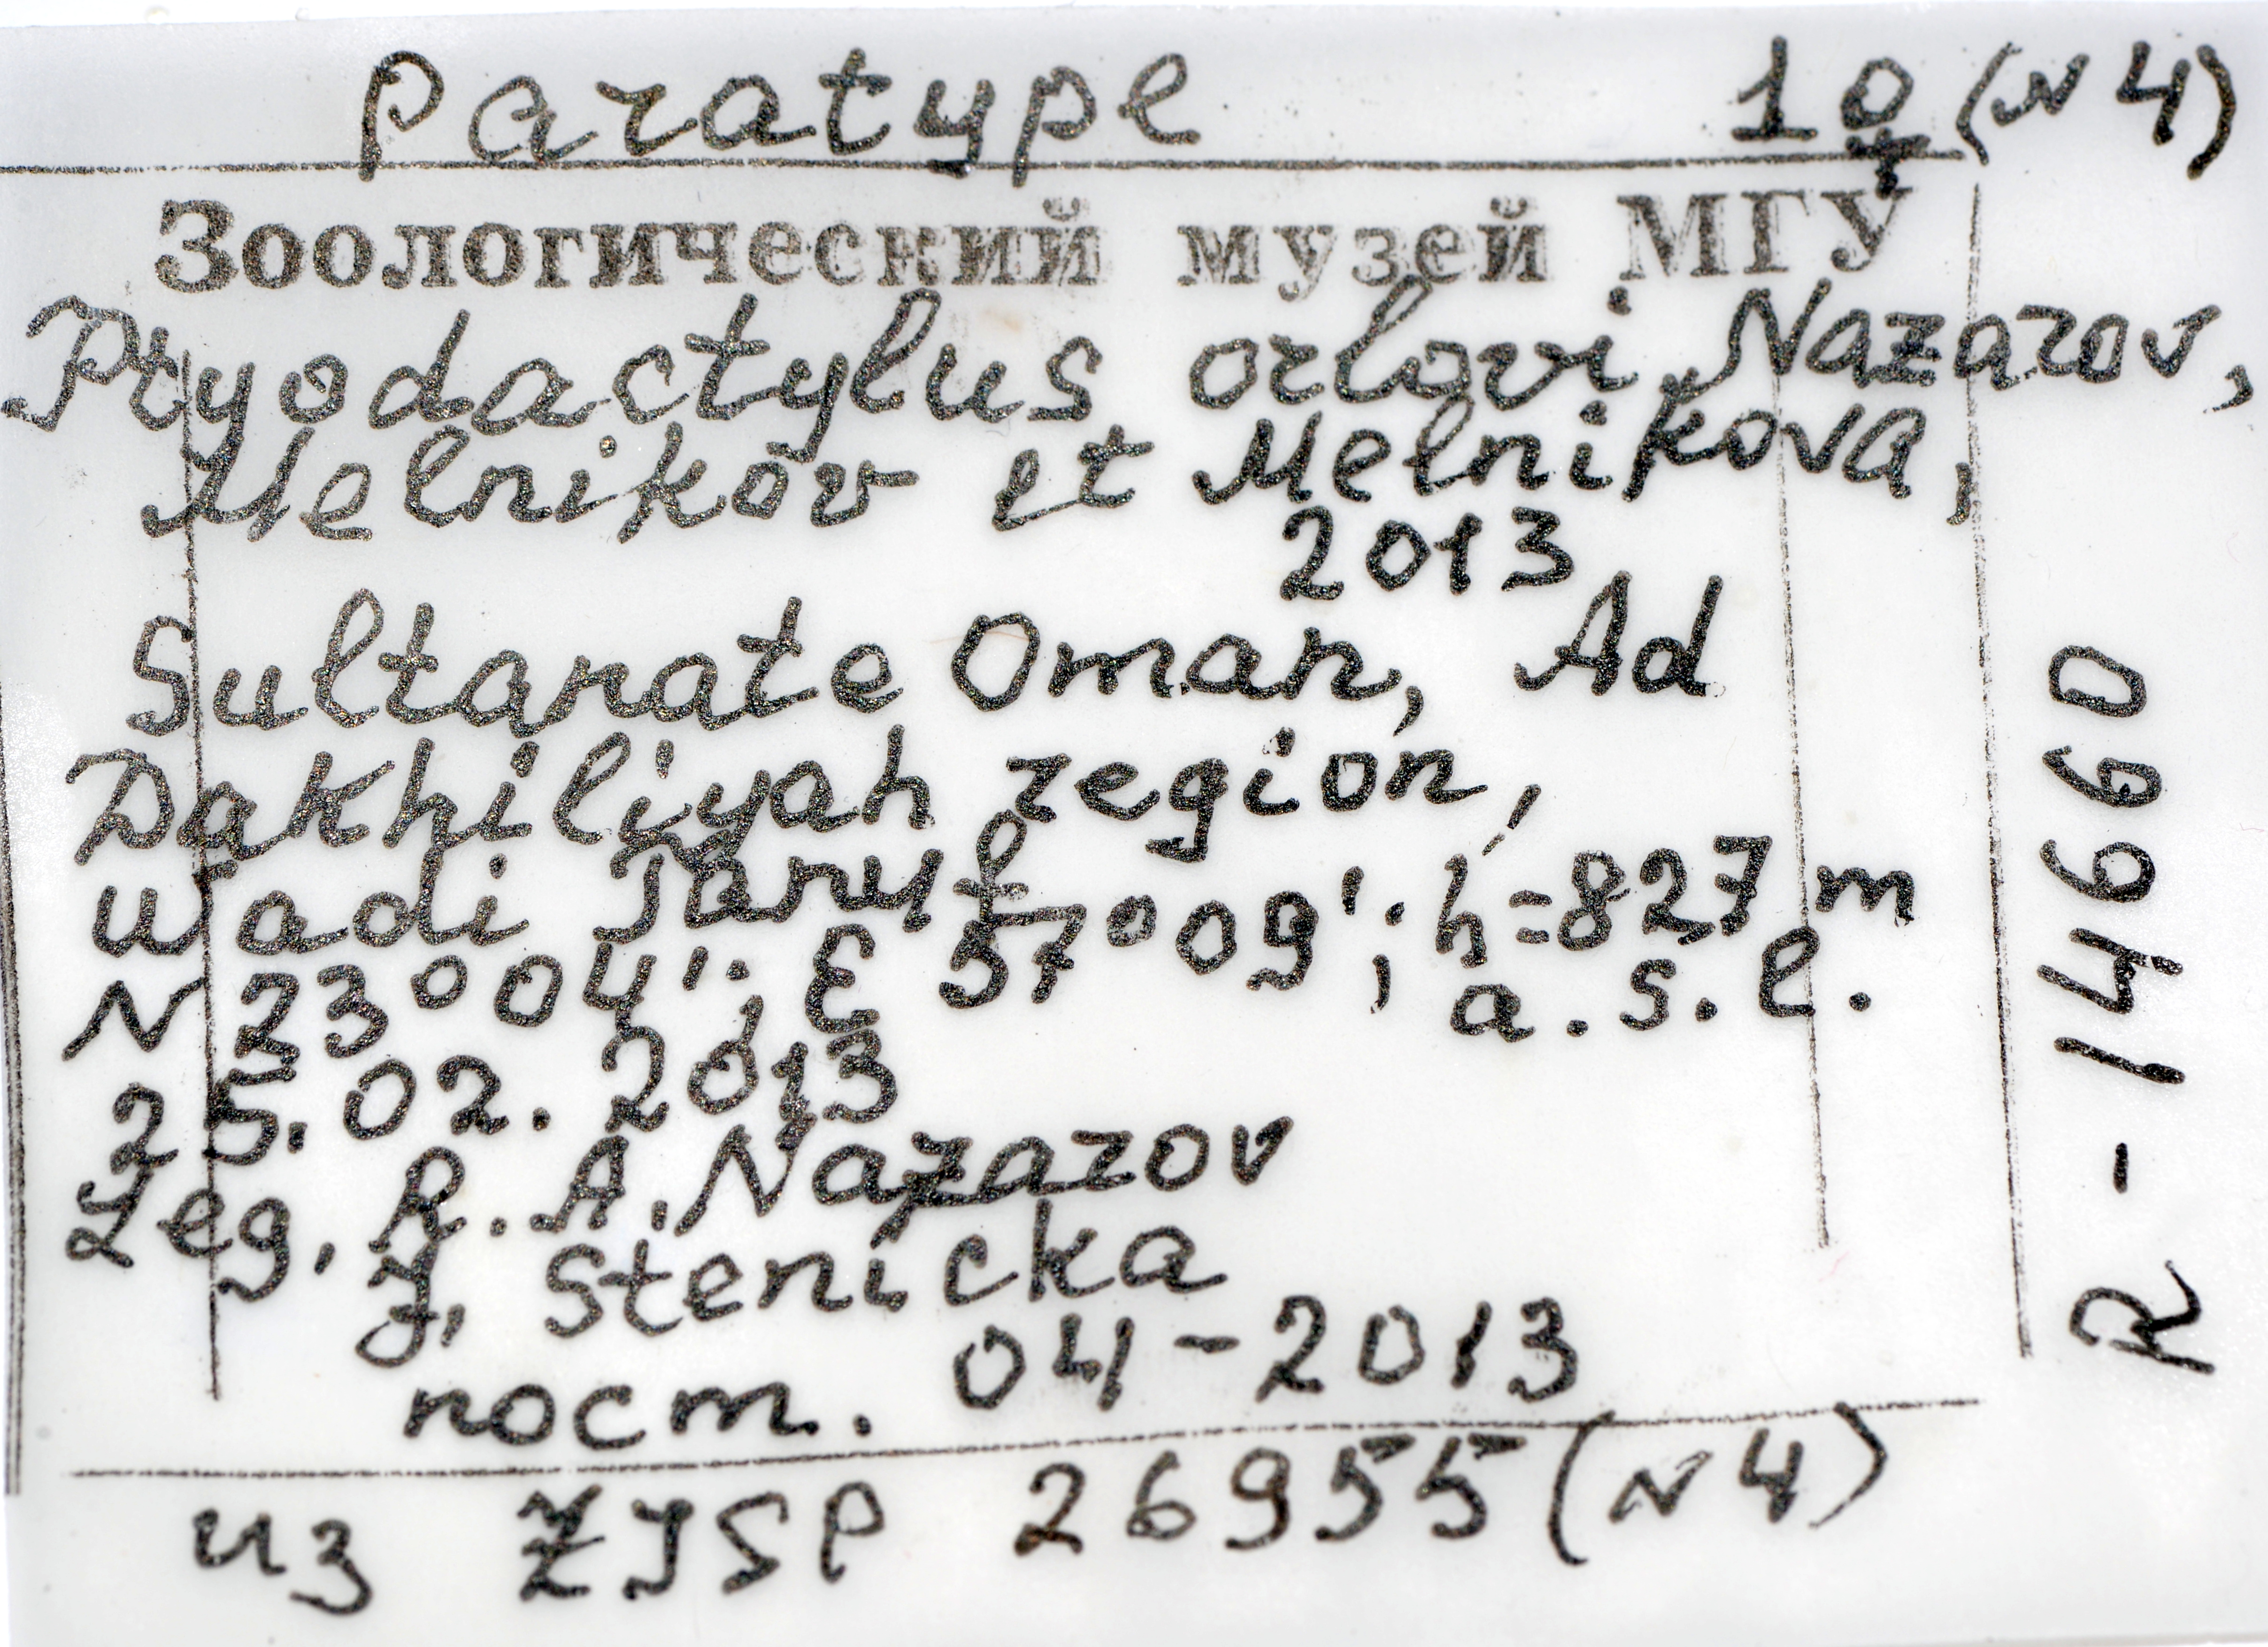 Paratype 1♀ (N4)
Зоологический музей МГУ
Ptyodactylus orlovi Nazarov,
Melnikov et Melnikova,
2013
Sultanate Oman, Ad
Dakhiliyah region,
wadi Tanuf
N 23°04'; E 57°09'; h=827 m
a.s.l.
25.02.2013
Leg. R.A. Nazarov
J. Stenicka
пост. 04-2013
из ZISP 26955 (N4)
R-14660